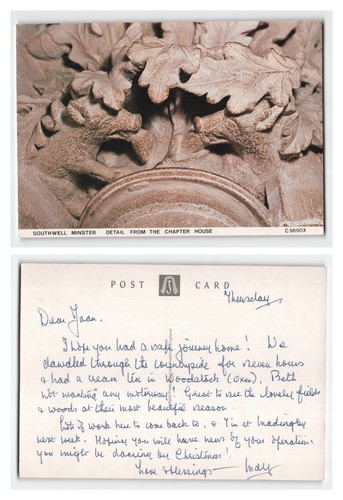 SOUTHWELL MINSTER DETAIL FROM THE CHAPTER HOUSE C5690X
POST CARD
Thursday
Dear Joan.
I hope you had a safe journey home! We
dawdled through the countryside for seven hours
& had a cream tea in Woodstock (Oxon), Beth
not wanting any motorway! Great to see the lovely fields
& woods at their most beautiful season.
Lots of work here to come back to, & I'm at Madingley
next week. Hoping you will have news of your operation:
you might be dancing by Christmas!
Love & blessings —